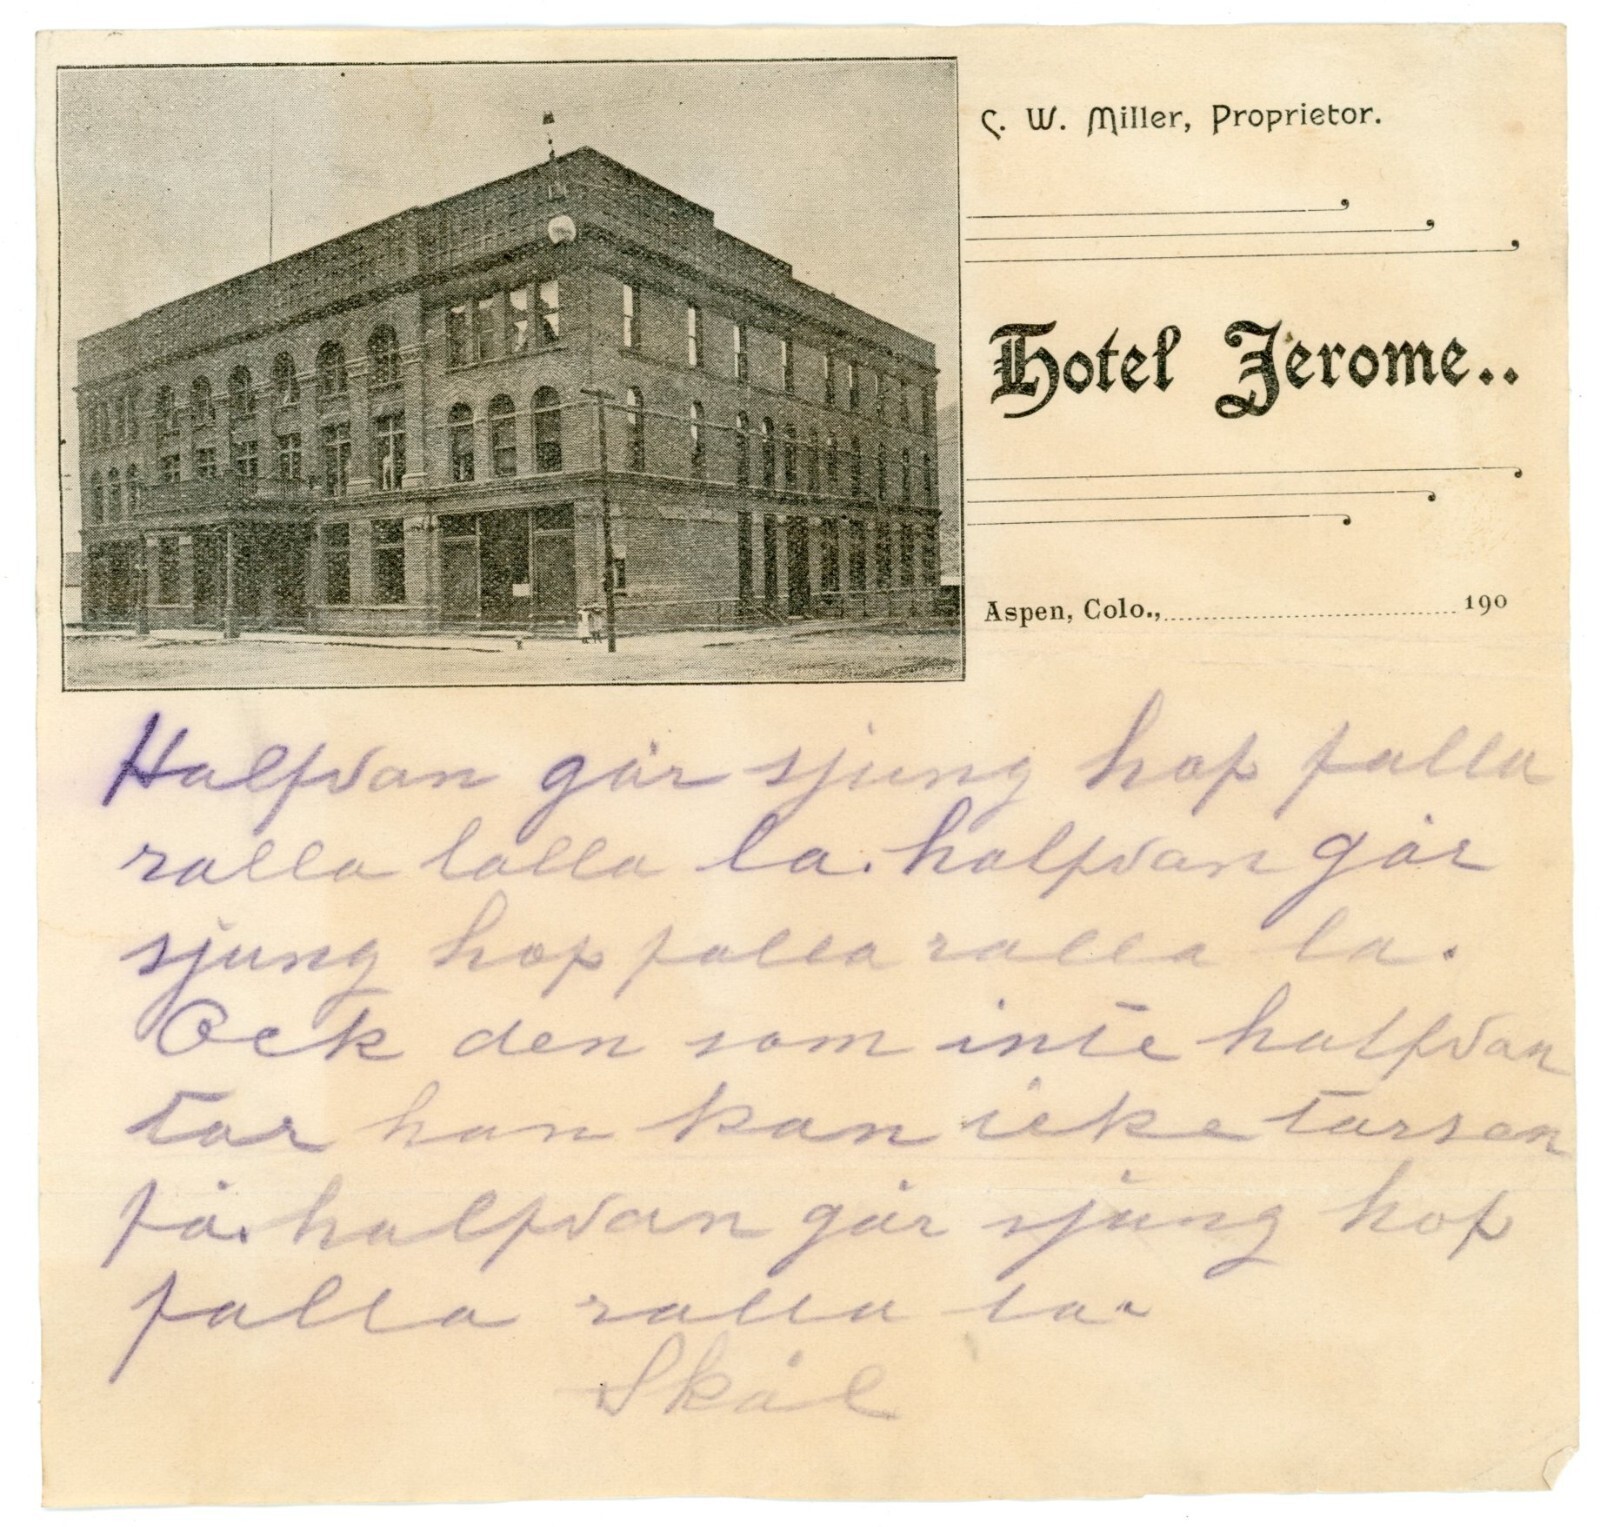 C. W. Miller, Proprietor.
Hotel Jerome..
Aspen, Colo., 190
Halfvan går sjung hop falla
ralla lalla la. halfvan går
sjung hop falla ralla la.
Ock den som inte halfvan
tar han kan icke tarsen
få. halfvan går sjung hop
falla ralla la.
Skål